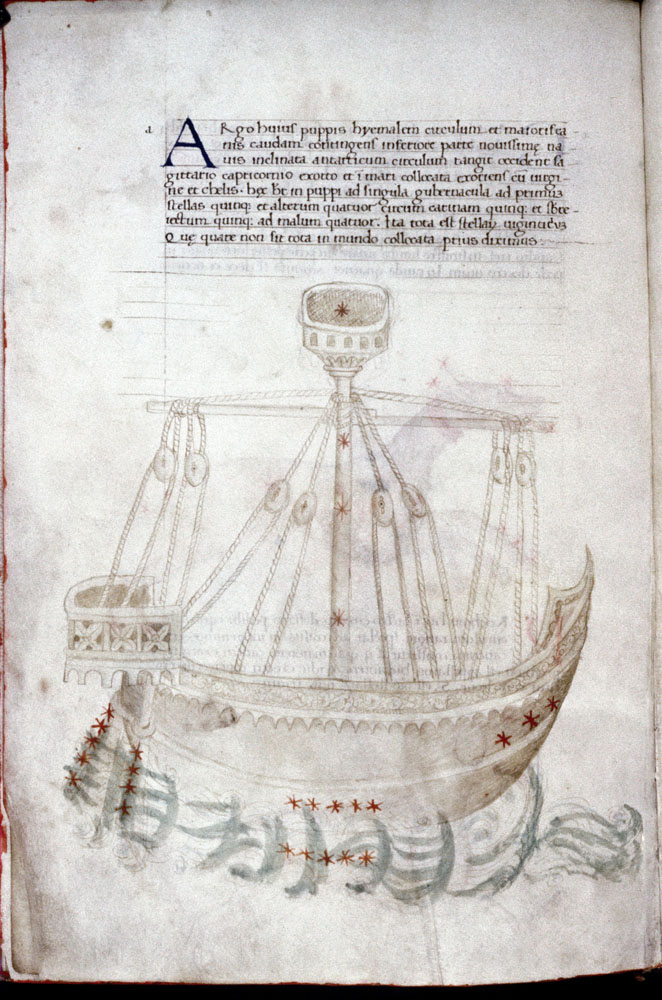 a
ARgo huius puppis hyemalem circulum et maioris ca-
nis caudam contingens inferiore parte nouissime na-
uis inclinata antarticum circulum tangit occidens sa
gittario capricornio exorto et i mari collocata exoriens cu uirgi-
ne et chelis. hec ht in puppi ad singula gubernacula ad primuz
stellas quinq; et alterum quatuor circum carinam quinq; et sbte
rectum quinq; ad malum quatuor. Ita tota est stellaꝝ
Que quare non sit tota in mundo collocata prius diximus.